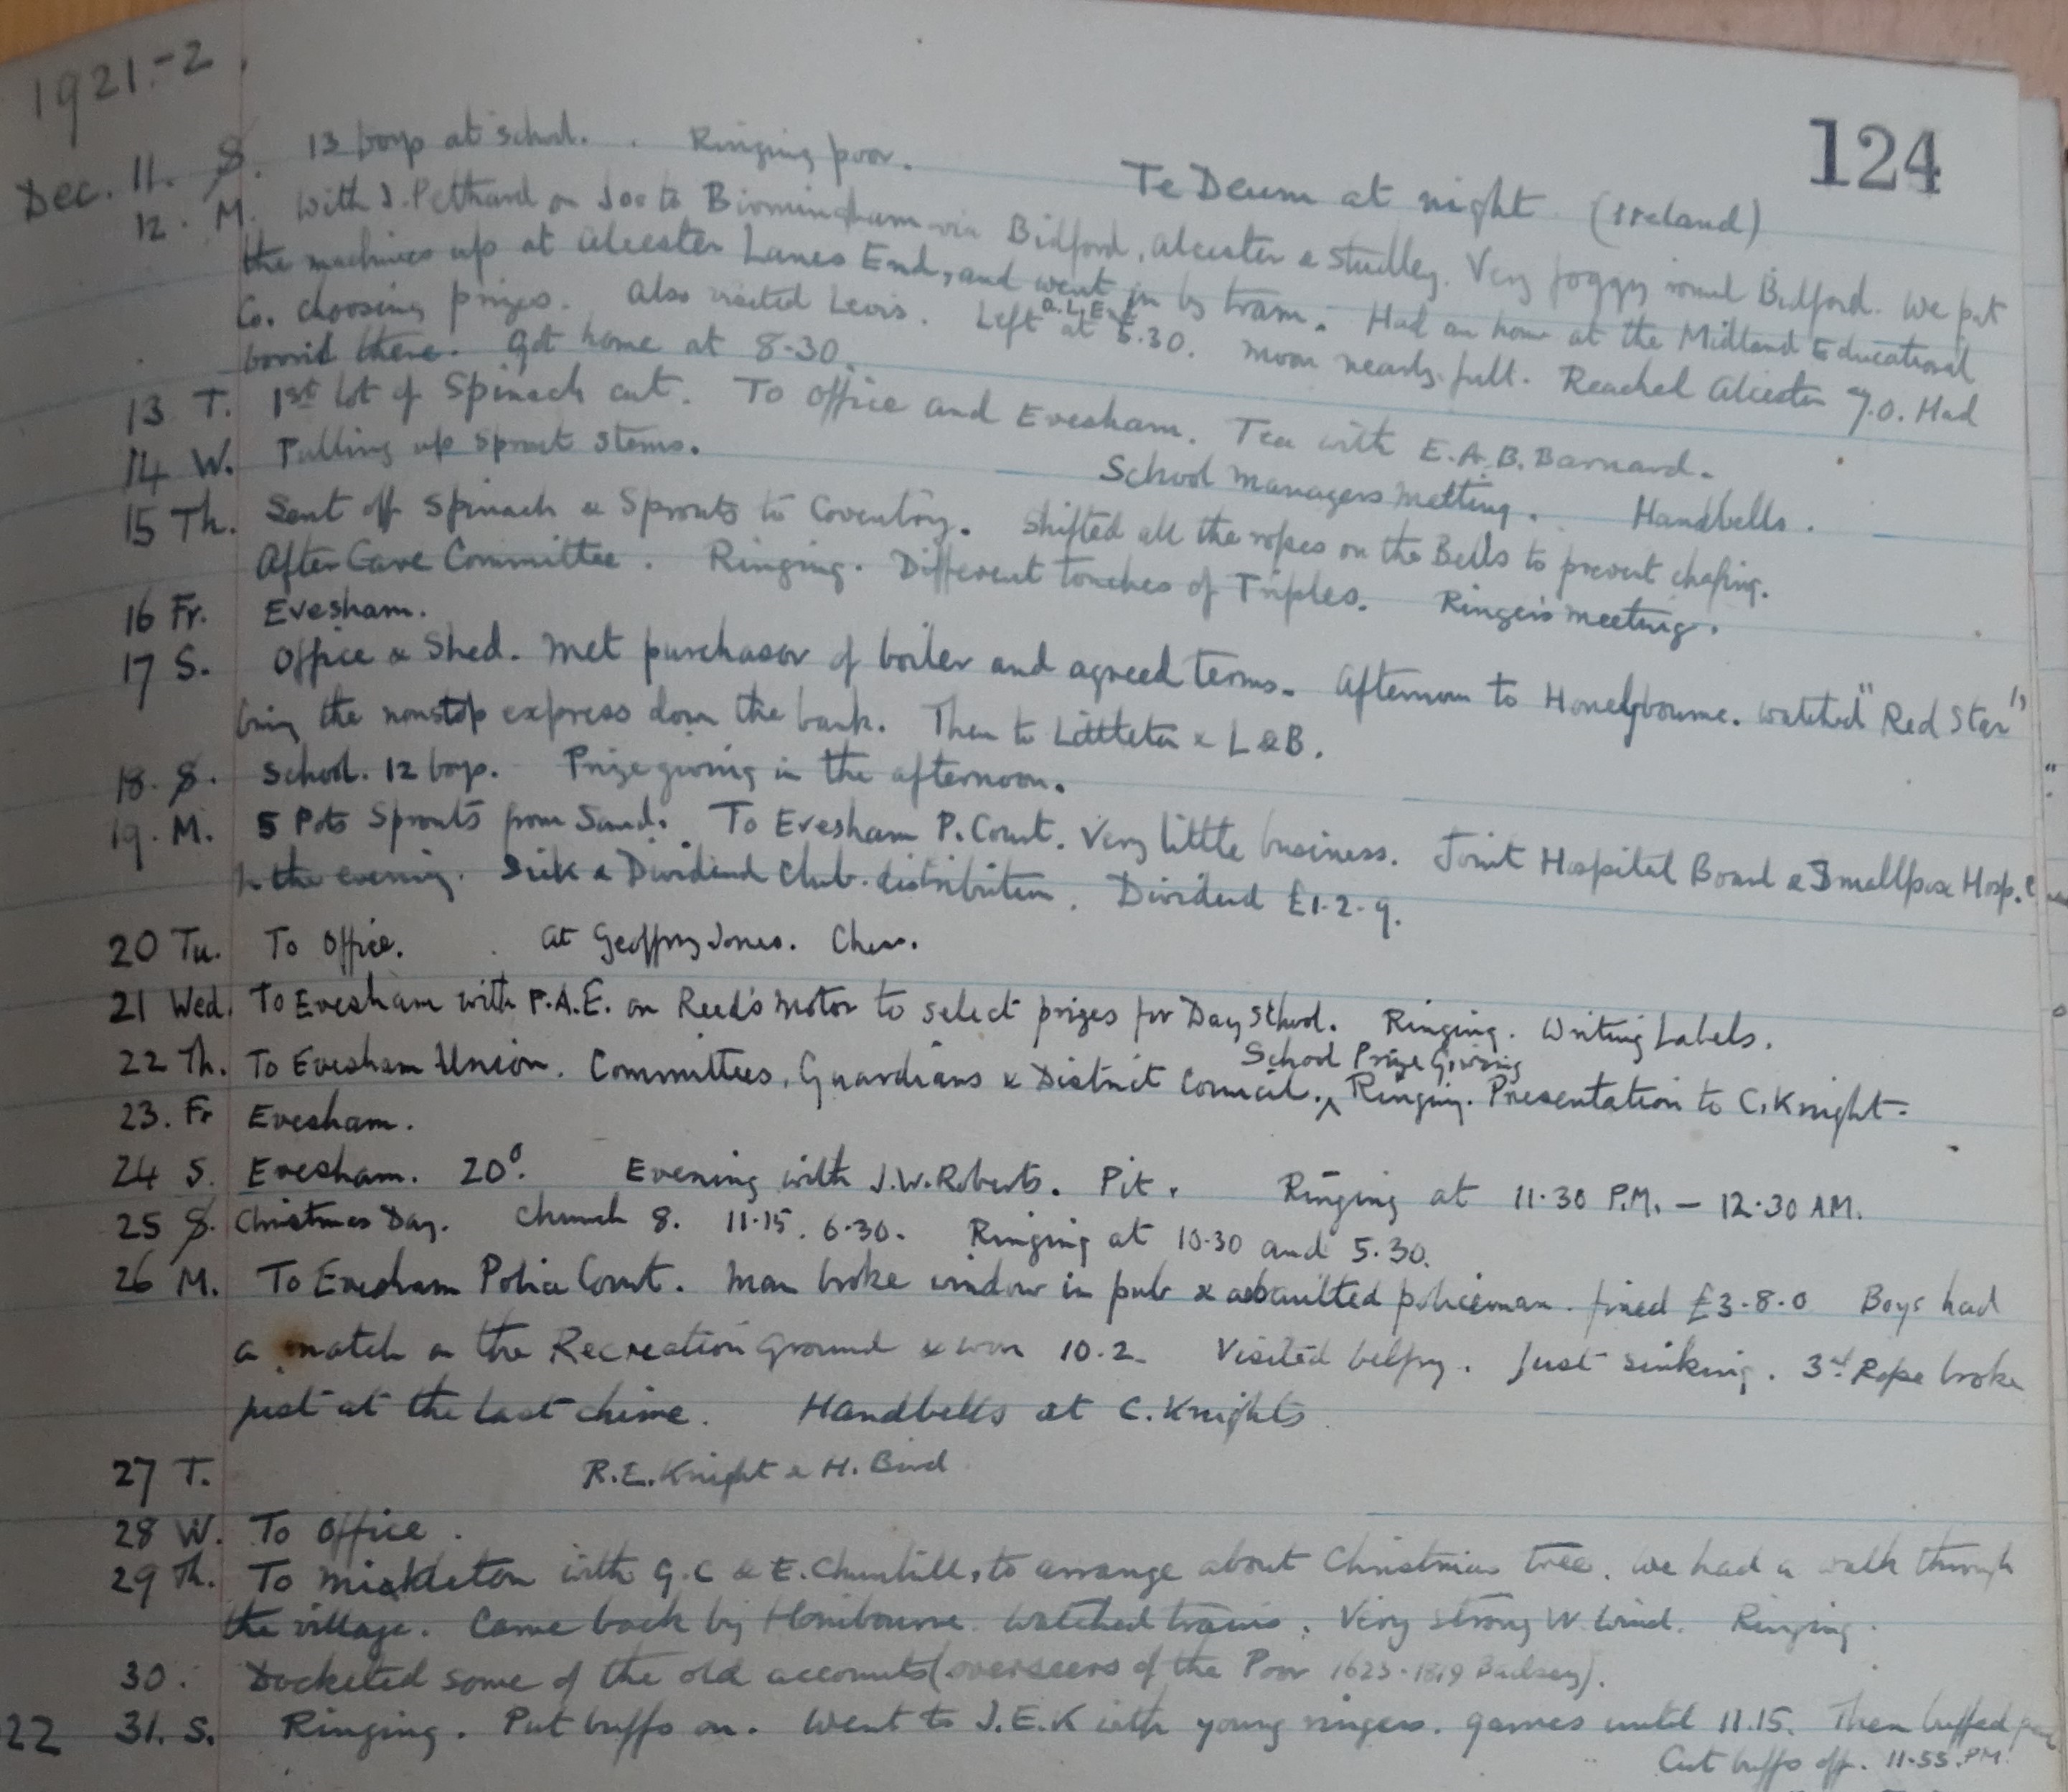 1921-2.
124
Dec. 11. S. 13 boys at school. . Ringing poor. Te Deum at night (Ireland)
12. M. With J. Pethard on Jos to Birmingham via Bidford, Alcester & Studley. Very foggy round Bidford. We put
the machines up at Alcester Lanes End, and went in by tram. Had an hour at the Midland Educational
Co. choosing prizes. Also visited Lewis. Left A.L.End at 5.30. Moon nearly full. Reached Alcester 7.0. Had
bovril there. Got home at 8-30.
13 T. 1st lot of Spinach cut. To Office and Evesham. Tea with E.A.B. Barnard.
14 W. Pulling up sprout stems. School managers meeting. Handbells.
15 Th. Sent off Spinach & Sprouts to Coventry. Shifted all the ropes on the Bells to prevent chafing.
After Care Committee. Ringing. Different touches of Triples. Ringers meeting.
16 Fr. Evesham.
17 S. Office & Shed. Met purchaser of boiler and agreed terms. Afternoon to Honeybourne. Watched "Red Star"
bring the nonstop express down the bank. Then to Littleton & L&B.
18. S. School. 12 boys. Prizegiving in the afternoon.
19. M. 5 Pots Sprouts from Sand. To Evesham P. Court. Very little business. Joint Hospital Board & Smallpox Hosp.
In the evening. Sick & Dividend Club distribution. Dividend £1.2.9.
20 Tu. To Office. at Geoffry Jones. Chess.
21 Wed. To Evesham with P.A.E. on Reed's motor to select prizes for Day School. Ringing. Writing Labels.
22 Th. To Evesham Union. Committees, Guardians & District Council. School Prize Giving Ringing. Presentation to C. Knight.
23. Fr Evesham.
24 S. Evesham. 20°. Evening with J.W. Roberts. Pit. Ringing at 11.30 P.M. - 12.30 AM.
25 S. Christmas Day. Church 8. 11.15. 6.30. Ringing at 10.30 and 5.30.
26 M. To Evesham Police Court. Man broke window in pub & assaulted policeman. fined £3-8-0 Boys had
a match on the Recreation Ground & won 10.2. Visited belfry. Just sinking. 3rd Rope broke
just at the last chime. Handbells at C. Knights
27 T. R.E. Knight & H. Bird
28 W. To Office.
29 Th. To Mickleton with G.C & E. Churchill, to arrange about Christmas tree. We had a walk through
the village. Came back by Honibourne. Watched trains. Very strong W. Wind. Ringing.
30. Docketed some of the old accounts (overseers of the Poor 1623-1819 Badsey).
22 31. S. Ringing. Put buffs on. Went to J.E.K with young ringers. games until 11.15. Then buffed
Cut buffs off. 11.55. PM.